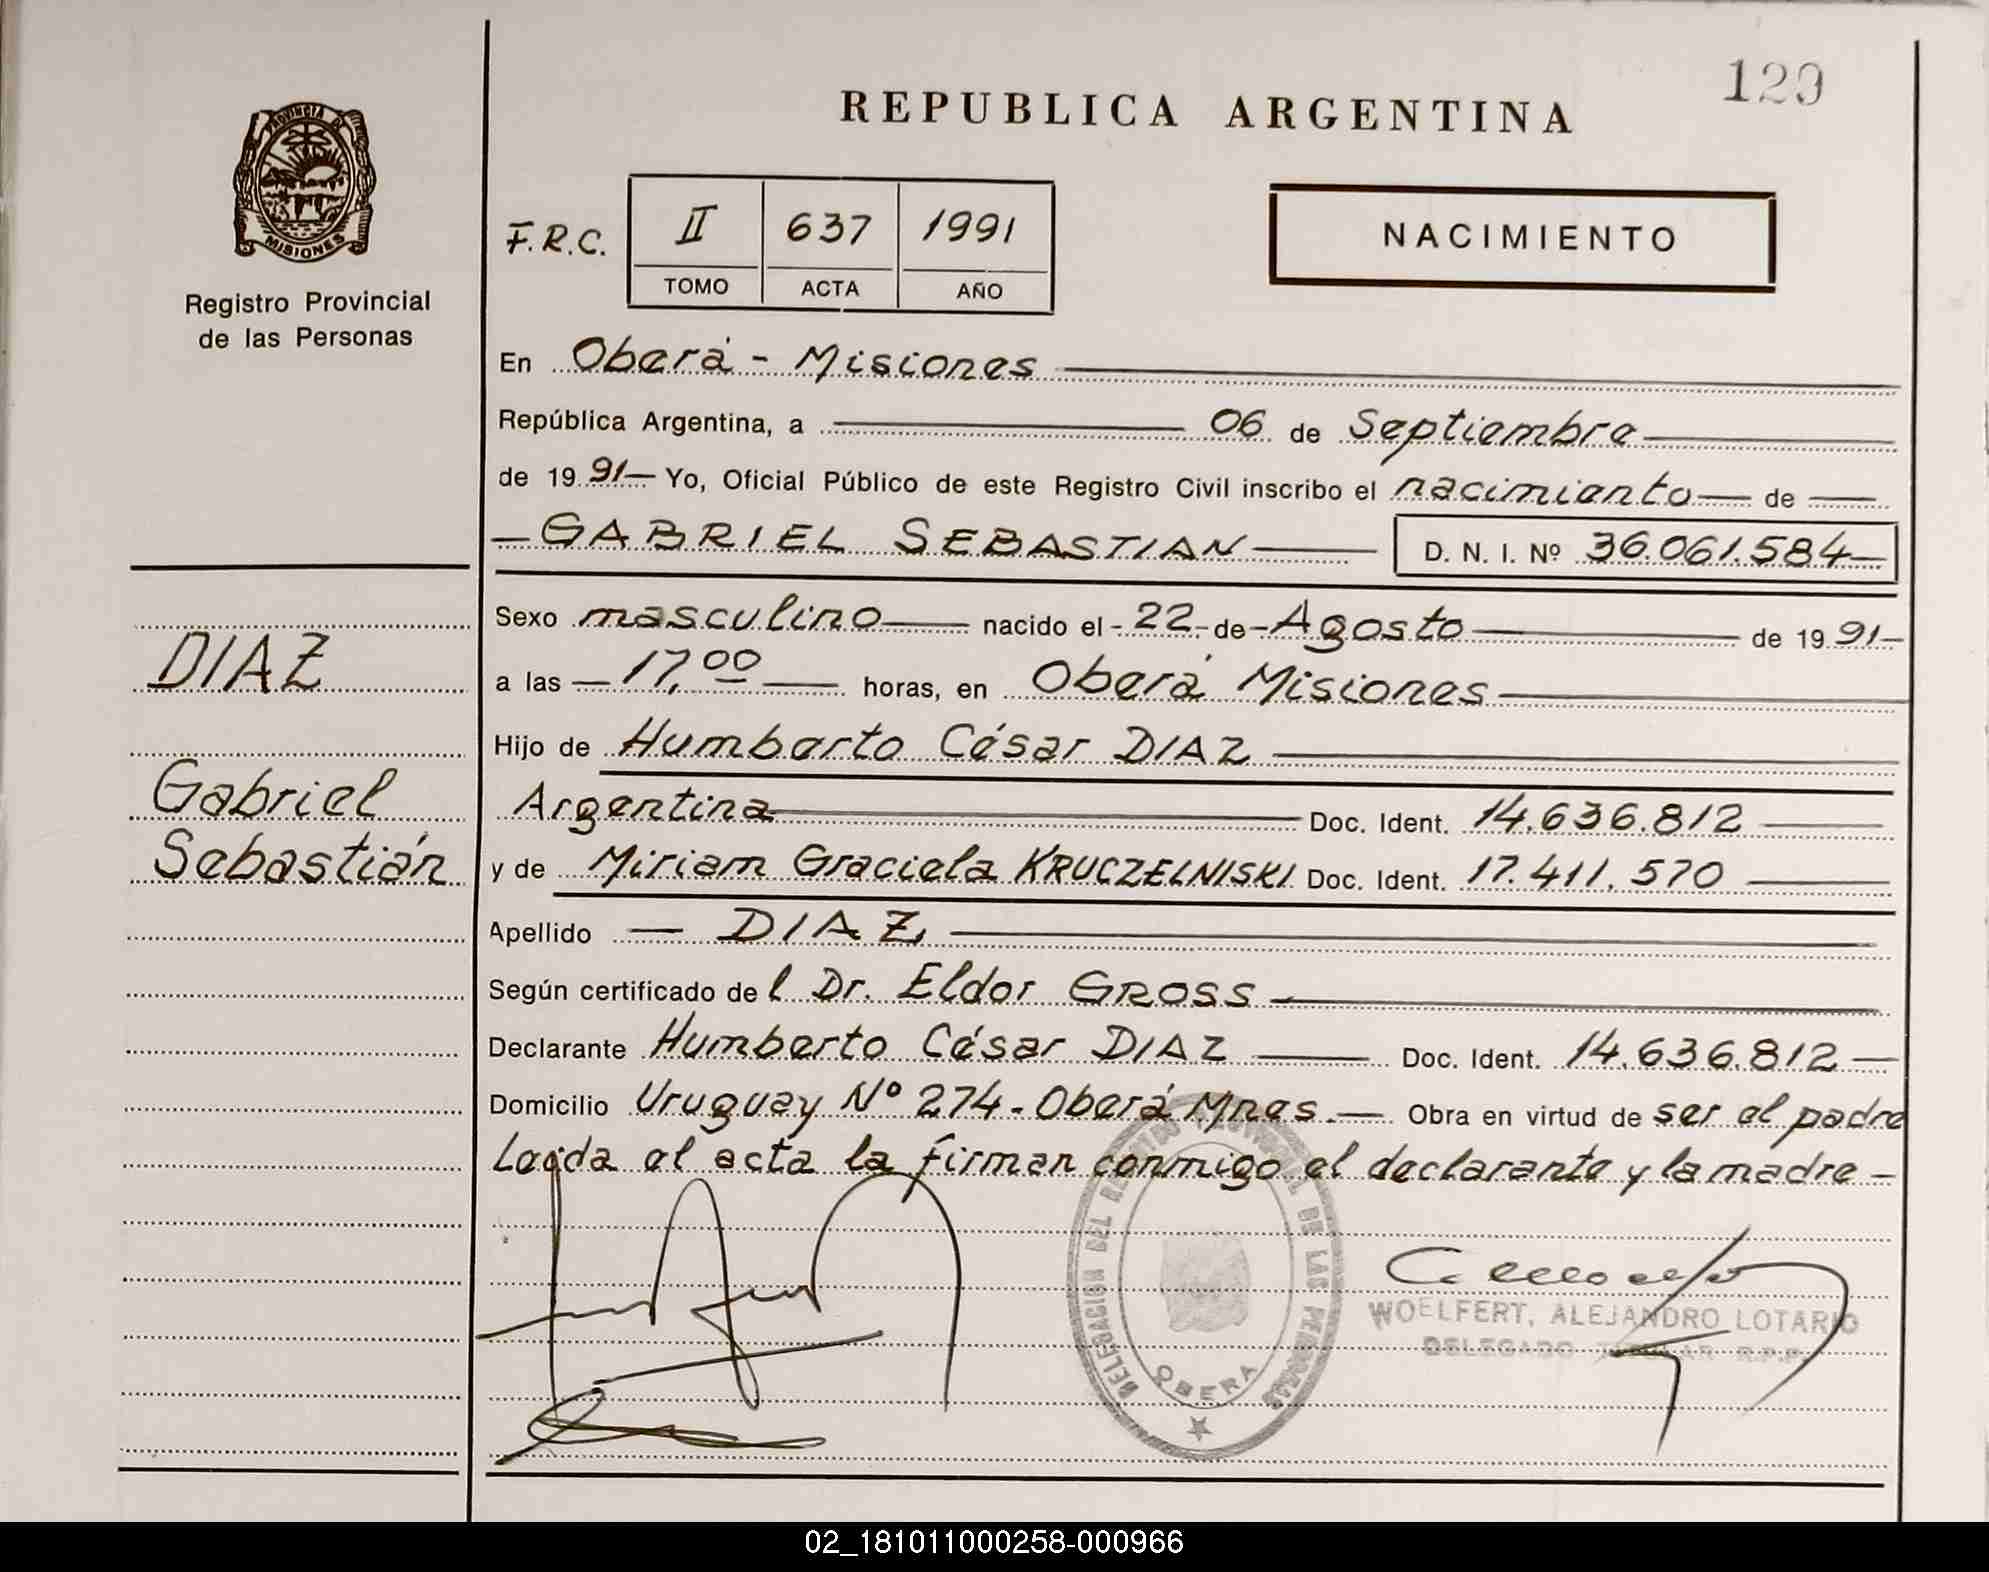 129
REPUBLICA ARGENTINA
PROVINCIA DE
MISIONES
Registro Provincial
de las Personas
F.R.C. II 637 1991
TOMO ACTA AÑO
NACIMIENTO
En Oberá - Misiones
República Argentina, a 06 de Septiembre
de 1991 Yo, Oficial Público de este Registro Civil inscribo el nacimiento de
GABRIEL SEBASTIAN D. N. I. Nº 36.061.584
DIAZ
Gabriel
Sebastián
Sexo masculino nacido el 22 de Agosto de 1991
a las 17,00 horas, en Oberá Misiones
Hijo de Humberto César DIAZ
Argentina Doc. Ident. 14.636.812
y de Miriam Graciela KRUCZELNISKI Doc. Ident. 17.411.570
Apellido DIAZ
Según certificado del Dr. Eldor GROSS
Declarante Humberto César DIAZ Doc. Ident. 14.636.812
Domicilio Uruguay Nº 274 - Oberá Mnes. Obra en virtud de ser el padre
Leída el acta la firman conmigo el declarante y la madre
DELEGACION DEL REGISTRO PROVINCIAL DE LAS PERSONAS
OBERA
WOELFERT, ALEJANDRO LOTARIO
DELEGADO TITULAR R.P.P.
02_181011000258-000966